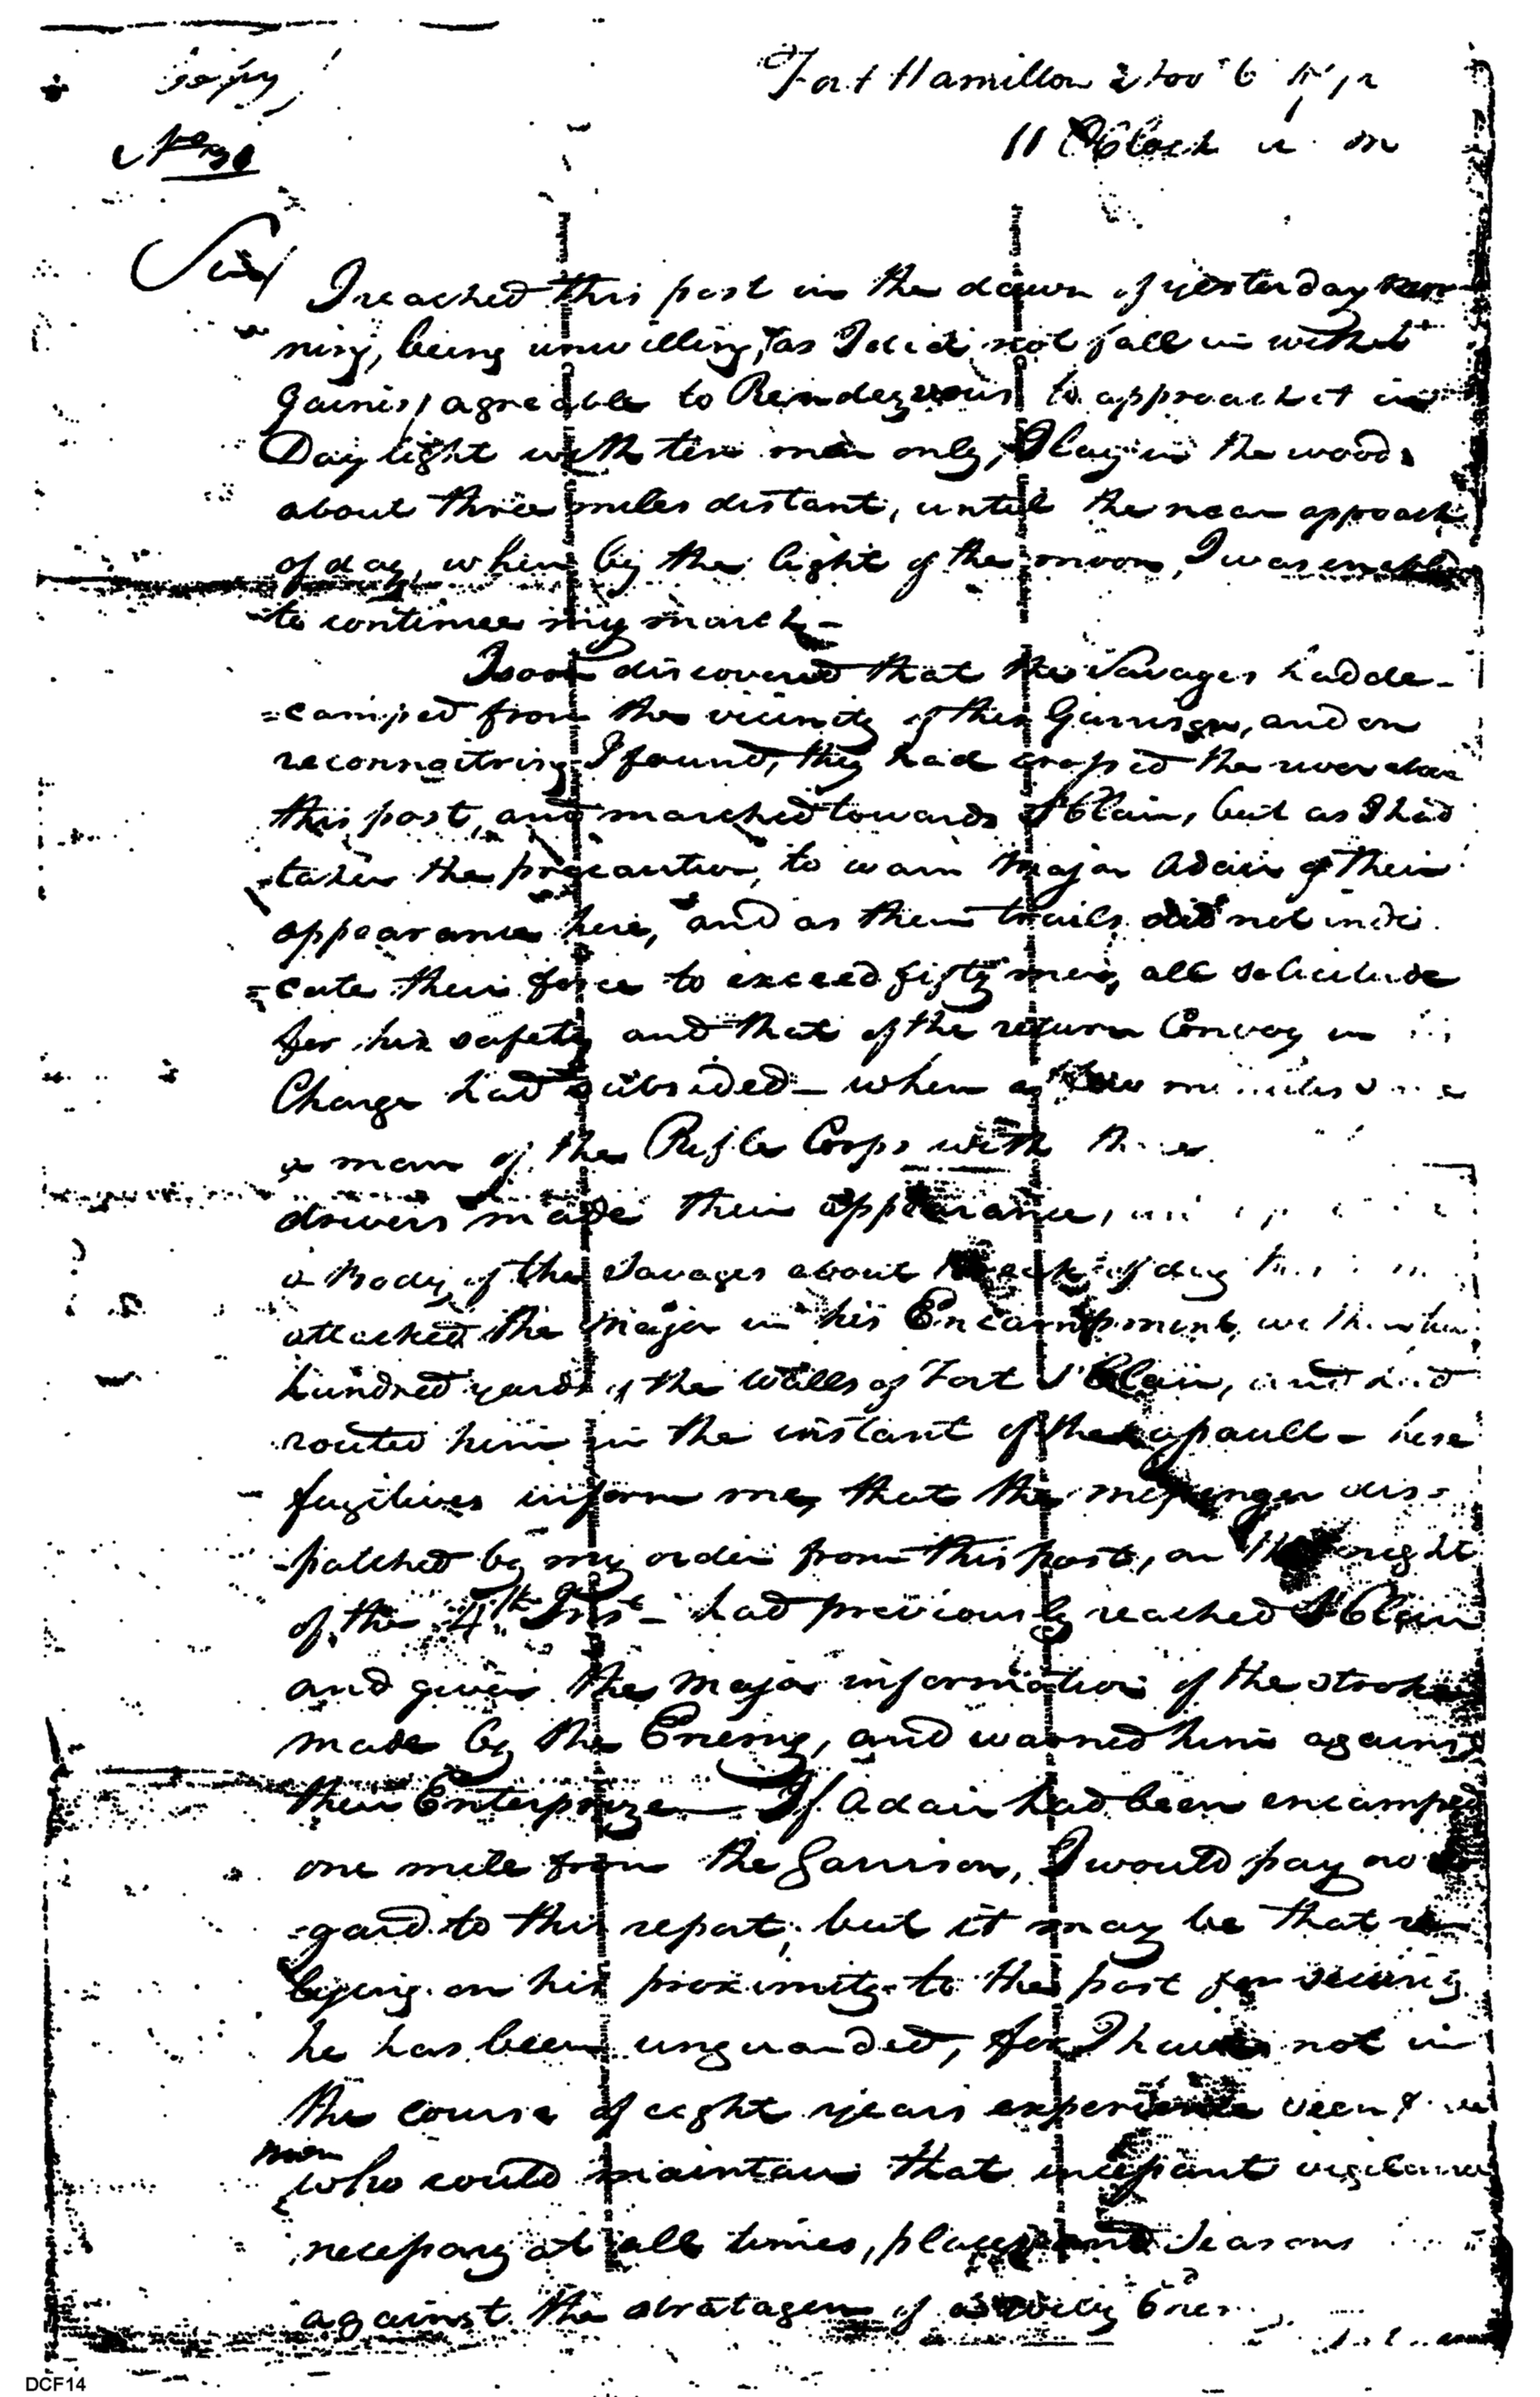 Copy
Fort Hamilton
11 OClock a. m
Sir/
I reached this post in the dawn of yesterday
ning, being unwilling, as I did not fall in with
Gaines / agreeable to Rendezvous to approach it in
Day light with ten men only, I lay in the woods
about three miles distant, until the near approach
of day, when by the light of the moon, I was enabled
to continue my march -
I soon discovered that the Savages had de-
=camped from the vicinity of this Garrison, and on
reconnoitring I found, they had crossed the river above
this post, and marched towards St Clair, but as I had
taken the precaution, to warn Major Adair of their
appearance here, and as their trails did not indi
=cate their force to exceed fifty men, all solicitude
for his safety and that of the return Convoy in
Charge had subsided - when a few minutes
a man of the Rifle Corps with
drivers made their appearance,
a Body of the Savages about break of day
attacked the Major in his Encampment, within
hundred yards of the Walls of Fort St Clair, and had
routed him in the instant of the assault -
fugitives inform me, that the messenger dis-
patched by my order from this post, on the night
of the 4th Inst - had previously reached St Clair
and given the Major information of the stroke
made by the Enemy, and warned him against
their Enterprize - If Adair had been encamped
one mile from the Garrison, I would pay no
gard to this report, but it may be that re
lying on his proximity to the post for security
he has been unguarded, for I have not in
the course of eight years experience seen
men
who could maintain that incessant vigilance
necessary at all times, places and Seasons
against the stratagem of a wily
DCF14